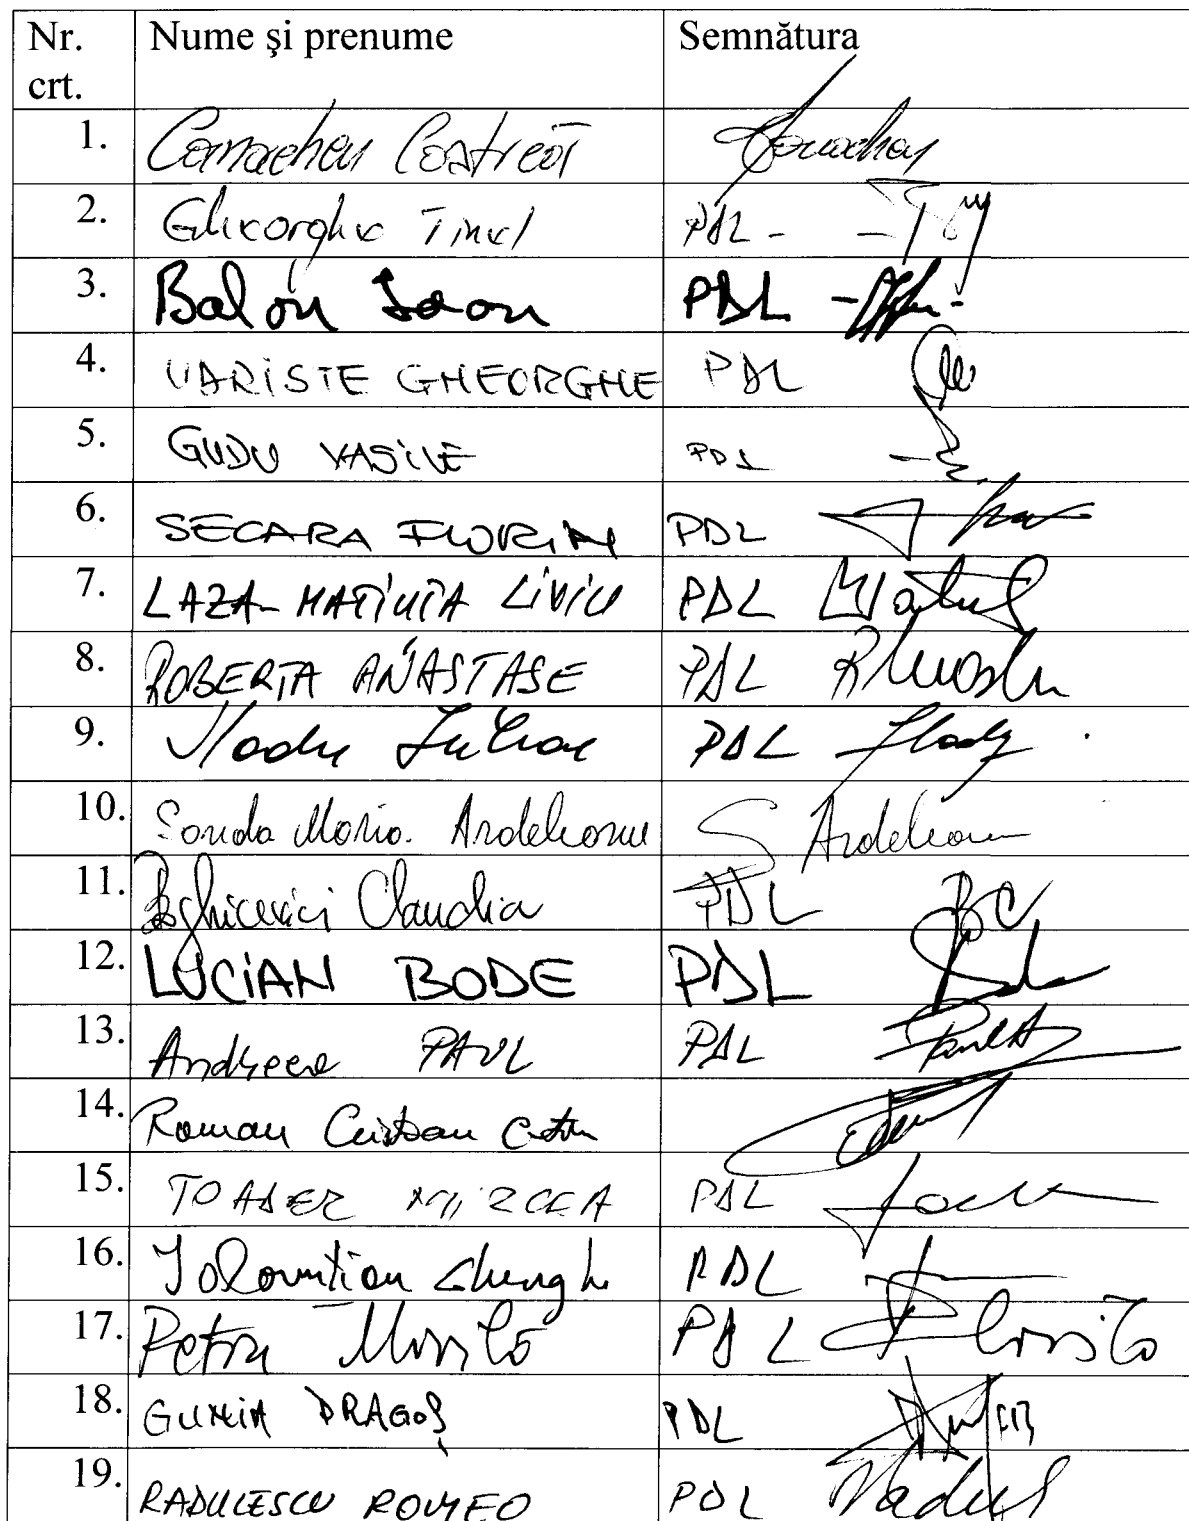 Nr. crt. Nume şi prenume Semnătura
1. Comachon Costică
2. Gheorghe Tinel PDL -
3. Balan Ioan PDL
4. UARISTE GHEORGHE PDL
5. GUDU VASILE PDL
6. SECARA FLORIN PDL
7. LAZA-MATIUTA LIVIU PDL
8. ROBERTA ANASTASE PDL
9. Vladu Iulian PDL
10. Sanda Maria Ardeleanu S Ardelean
11. Boghicevici Claudia PDL BC
12. LUCIAN BODE PDL
13. Andreea PAUL PDL
14. Roman Cristian
15. TOADER MIRCEA PDL
16. Ialomitian Gheorghe PDL
17. Petru Movilă PDL
18. GUNIA DRAGOŞ PDL
19. RADULESCU ROMEO PDL